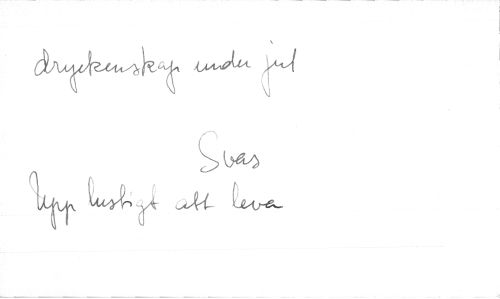 dryckenskap under jul
Svas
Upp lustigt att leva